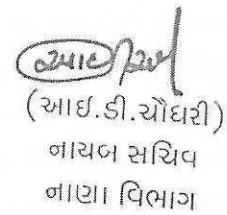 (આઈ.ડી.ચૌધરી)
નાયબ સચિવ
નાણા વિભાગ